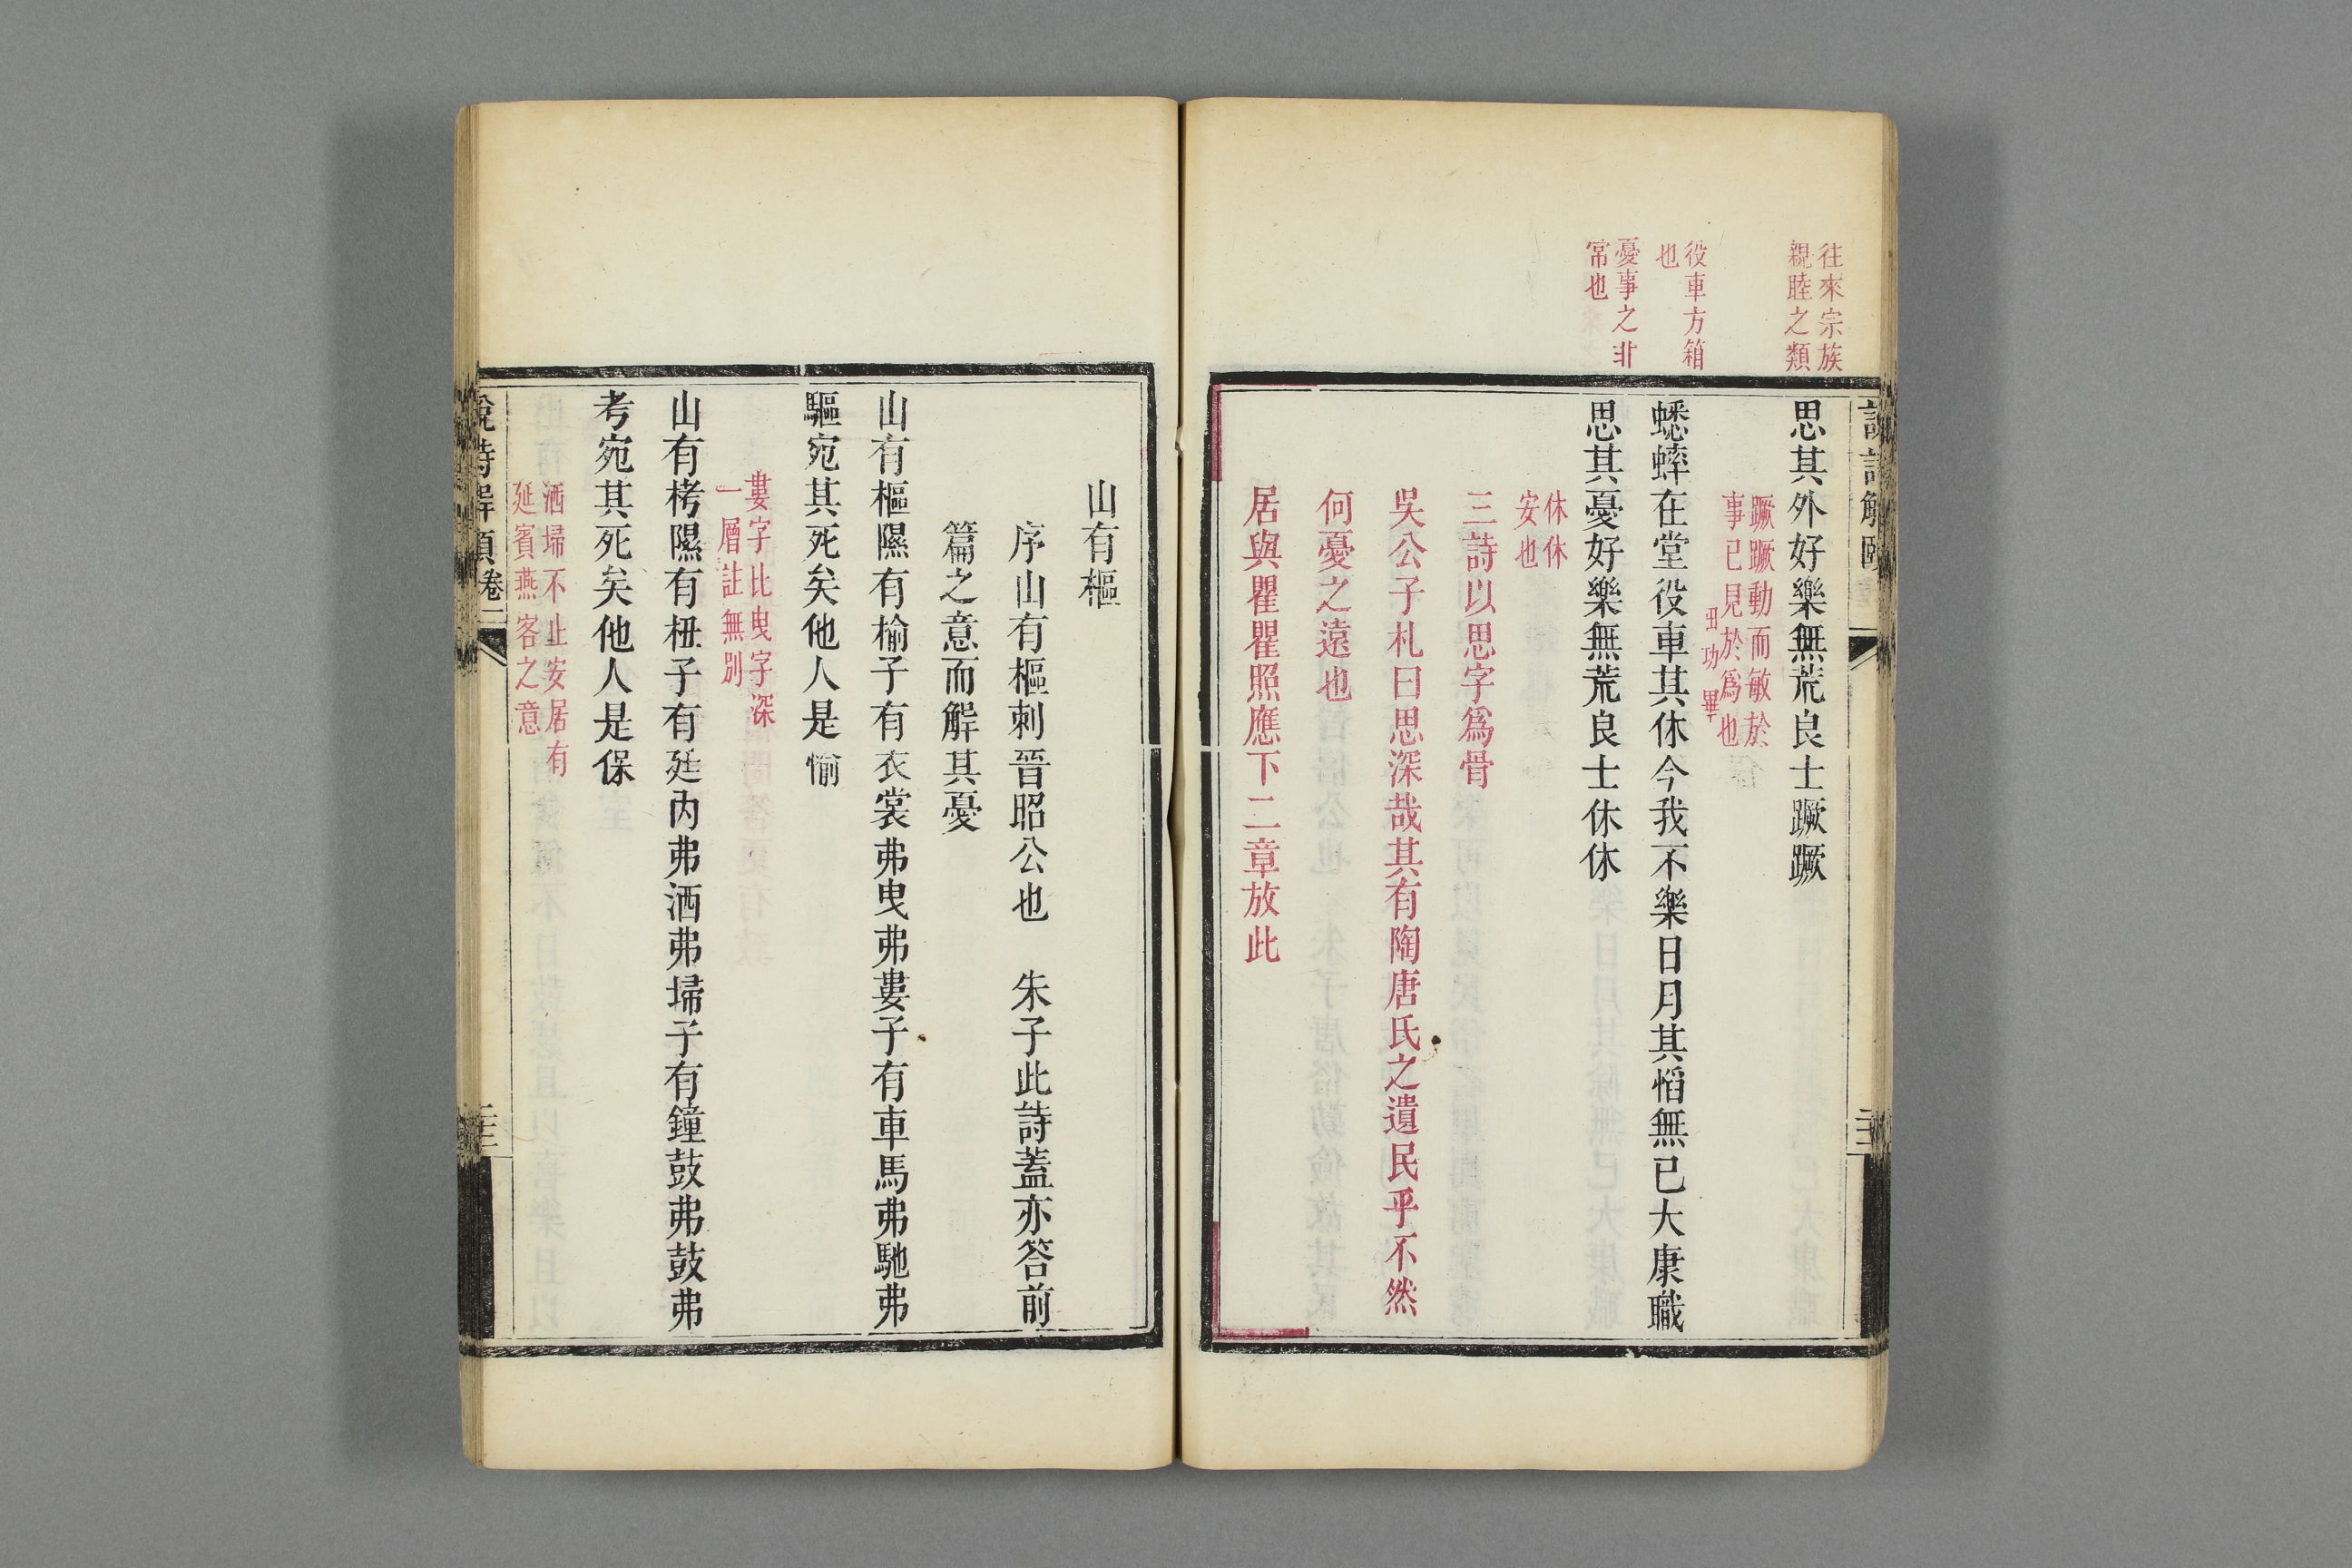 往來宗族
親睦之類
役車方箱
也
憂事之非
常也
思其外好樂無荒良士蹶蹶
蹶蹶動而敏於
事已見於為也
蟋蟀在堂役車其休今我不樂日月其慆無已大康職
思其憂好樂無荒良士休休
休休
安也
三詩以思字為骨
吳公子札曰思深哉其有陶唐氏之遺民乎不然
何憂之遠也
居與瞿瞿照應下二章放此
山有樞
序山有樞刺晉昭公也　朱子此詩蓋亦答前
篇之意而解其憂
山有樞隰有榆子有衣裳弗曳弗婁子有車馬弗馳弗
驅宛其死矣他人是愉
婁字比曳字深
一層註無別
山有栲隰有杻子有廷內弗洒弗埽子有鐘鼓弗鼓弗
考宛其死矣他人是保
洒埽不止安居有
延賓燕客之意
說詩解頤卷二